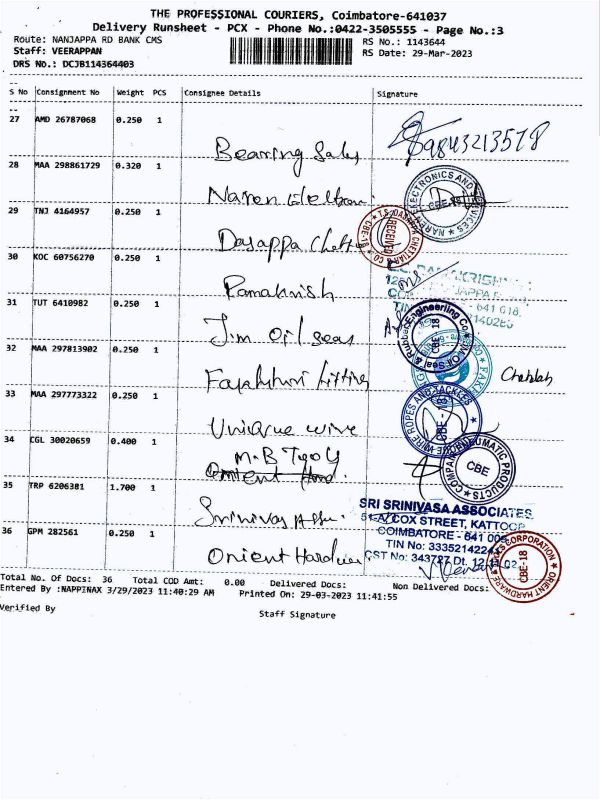 THE PROFESSIONAL COURIERS, Coimbatore-641037
Delivery Runsheet - PCX - Phone No.:0422-3505555 - Page No.:3
Route: NANJAPPA RD BANK CMS
RS No.: 1143644
Staff: VEERAPPAN
RS Date: 29-Mar-2023
DRS No.: DCJB114364403
S No Consignment No Weight PCS Consignee Details Signature
27 AMD 26787068 0.250 1
Bearing Sales
9843213578
28 MAA 298861729 0.320 1
Naren
ELECTRONICS AND SERVICES
CBE
29 TNJ 4164957 0.250 1
Dasappa
RECEIVED
CBE-18
30 KOC 60756270 0.250 1
Ramakrish
641 018.
31 TUT 6410982 0.250 1
Jim Oil seas
Engineering Co
CBE-18
32 MAA 297813902 0.250 1
33 MAA 297773322 0.250 1
Unique wire
WIRE ROPES AND TACKLES
CBE-18
34 CGL 30020659 0.400 1
M.B
PNEUMATIC PRODUCTS
CBE
35 TRP 6206381 1.700 1
Srinivas
SRI SRINIVASA ASSOCIATES
COX STREET, KATTOOR
COIMBATORE - 641 009
TIN No: 3335214224
36 GPM 282561 0.250 1
Orient Hardware
CST No: 343727 Dt.
CORPORATION
ORIENT HARDWARE
CBE-18
Total No. Of Docs: 36 Total COD Amt: 0.00 Delivered Docs: Non Delivered Docs:
Entered By :NAPPINAX 3/29/2023 11:40:29 AM Printed On: 29-03-2023 11:41:55
Verified By
Staff Signature